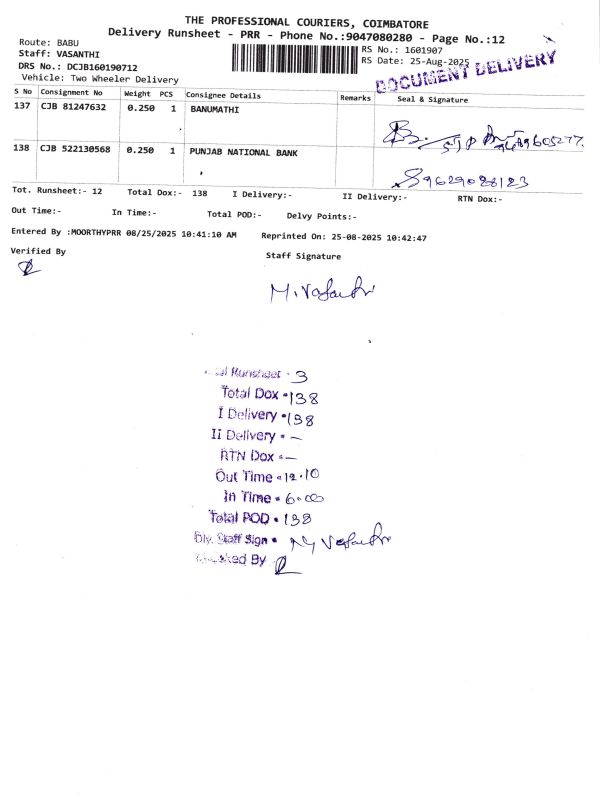 THE PROFESSIONAL COURIERS, COIMBATORE
Delivery Runsheet - PRR - Phone No.:9047080280 - Page No.:12
Route: BABU
RS No.: 1601907
Staff: VASANTHI
RS Date: 25-Aug-2025
DRS No.: DCJB160190712
DOCUMENT DELIVERY
Vehicle: Two Wheeler Delivery
S No Consignment No Weight PCS Consignee Details Remarks Seal & Signature
137 CJB 81247632 0.250 1 BANUMATHI
138 CJB 522130568 0.250 1 PUNJAB NATIONAL BANK
9629028123
Tot. Runsheet:- 12 Total Dox:- 138 I Delivery:- II Delivery:- RTN Dox:-
Out Time:- In Time:- Total POD:- Delvy Points:-
Entered By :MOORTHYPRR 08/25/2025 10:41:10 AM Reprinted On: 25-08-2025 10:42:47
Verified By
Staff Signature
M. Vasanthi
Runsheet - 3
Total Dox - 138
I Delivery - 138
II Delivery - —
RTN Dox - —
Out Time - 12.10
In Time - 6.00
Total POD - 138
Dlv. Staff Sign - M Vasanthi
Checked By